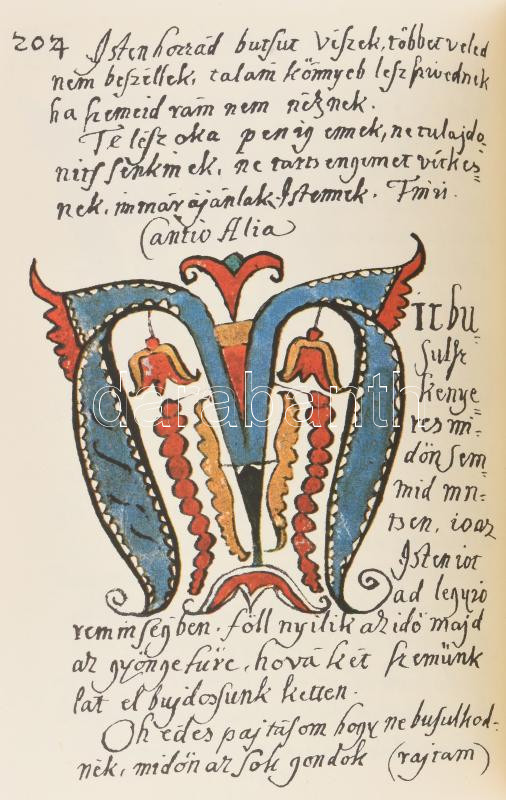 204 Isten hozzád butsut viszek, többet veled
nem beszéllek, talám könnyeb lesz szivednek
ha szemeid rám nem néznek.
Te lész oka penig ennek, ne tulajdo-
nits senkinek, ne tarts engemet vétkes=
nek, immár ajánlak Istennek. Finis.
Cantio Alia
darabanth
Mit bu=
sulsz
kenye=
res mi=
dön sem=
mid nin=
tsen, io az
Isten iot
ad légy io
reminségben. föll nyilik az idö majd
az gyönge füre, hová két szemünk
lát el bujdossunk ketten.
Oh édes pajtásom hogy ne busulkod-
nék, midön az sok gondok (rajtam)